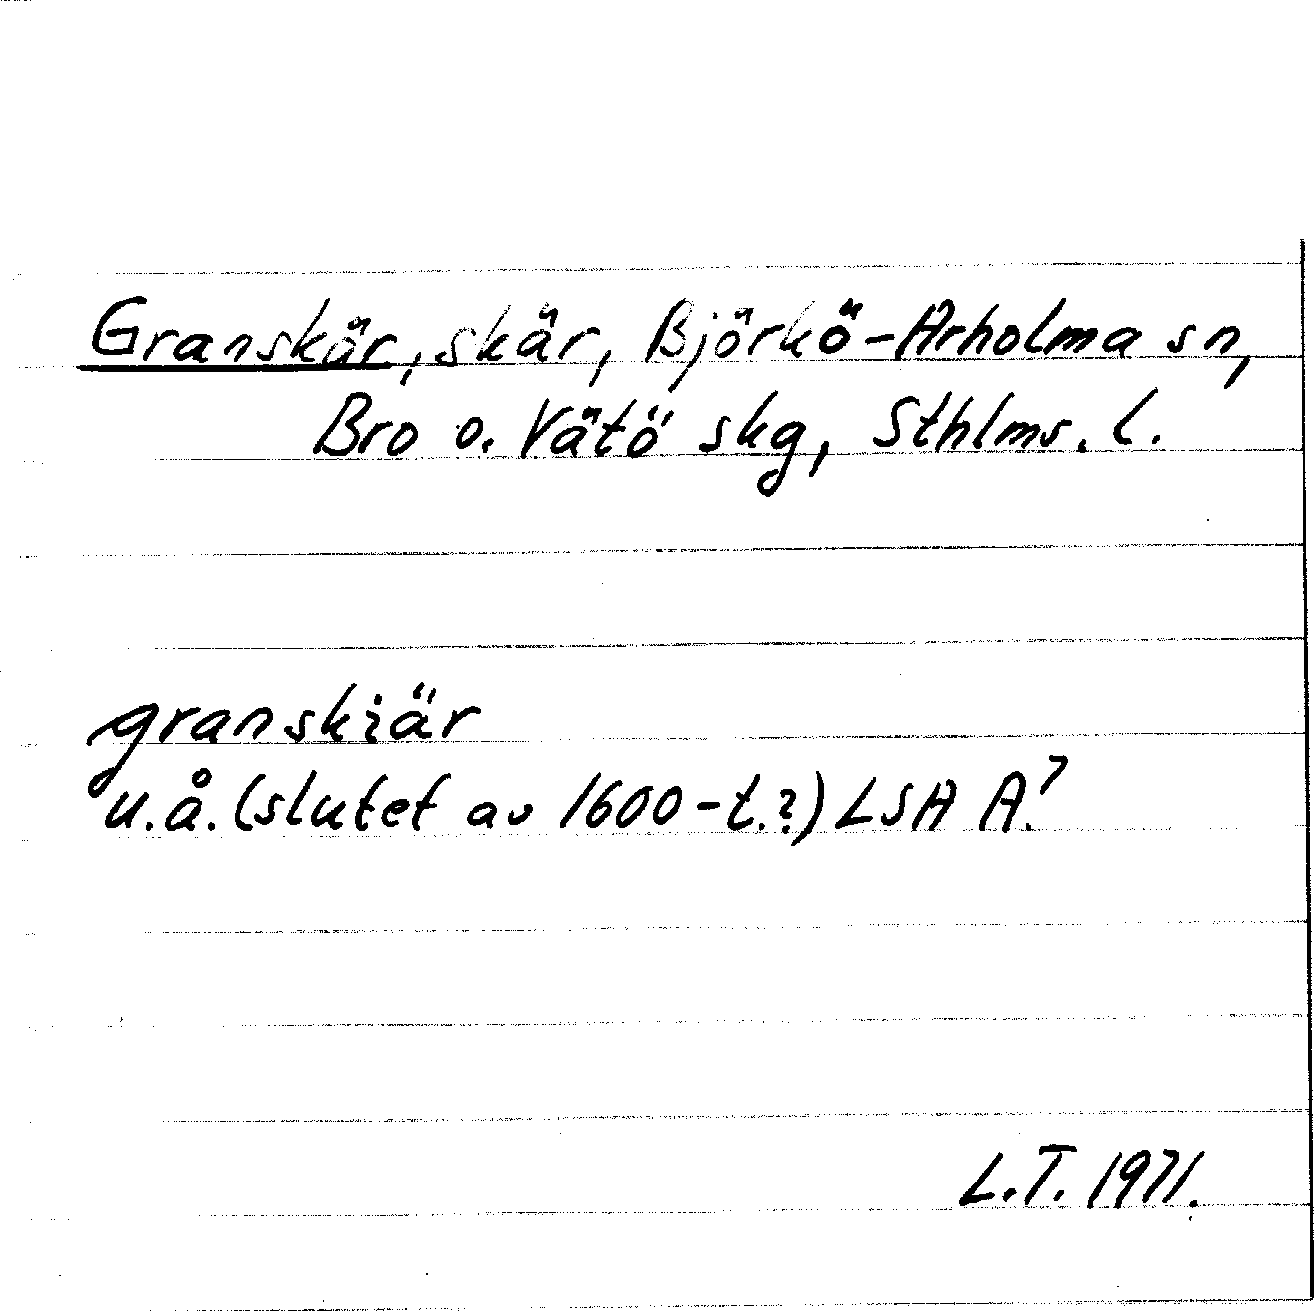 Granskär, skär, Björkö-Arholma sn,
Bro o. Vätö skg, Sthlms. l.
granskiär
u.å. (slutet av 1600-t.?) LSA A?
L.T. 1971.